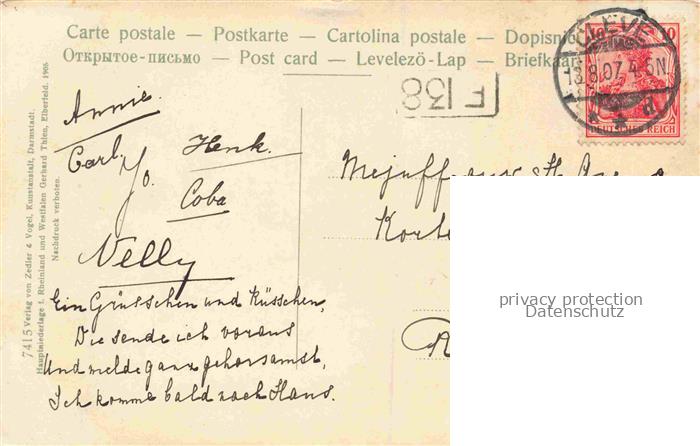 Carte postale — Postkarte — Cartolina postale — Dopisnic
Открытое-письмо — Post card — Levelező-Lap — Briefkaart
CLEVE
13.8.07. 4-5N.
d
10
DEUTSCHES REICH
F 138
Annie.
Carl.
Jo.
Henk.
Coba
Nelly
Mejuffrouw
Korte
Ein Grüsschen und Küsschen,
Die sende ich voraus
Und melde ganz gehorsamst,
Ich komme bald nach Haus.
7415 Verlag von Zedler & Vogel, Kunstanstalt, Darmstadt.
Hauptniederlage f. Rheinland und Westfalen Gerhard Thien, Elberfeld. 1905
Nachdruck verboten.
privacy protection
Datenschutz